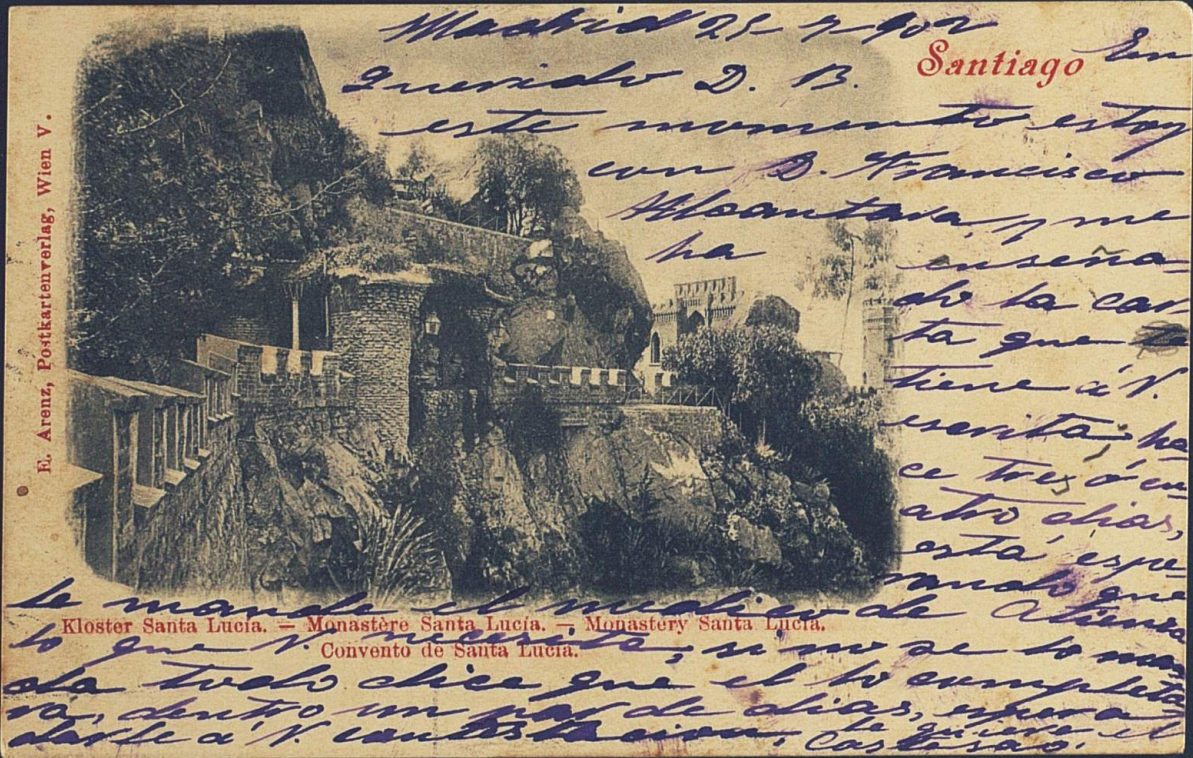 Madrid 25-7-902
Santiago
Querido D. B. En
este momento estoy
con D. Francisco
Alcantara, y me
ha enseña-
do la car
ta que le
tiene á V.
escrita, ha
ce tres ó cu-
atro dias,
está espe-
rando que
le mande el medico de Atienza
lo que V. necesita, si no se lo man
da todo dice que el lo completa
rá, dentro un par de dias, espera
darle á V. contestacion, le quiere el
Castesao.
Kloster Santa Lucía. — Monastère Santa Lucía. — Monastery Santa Lucía.
Convento de Santa Lucía.
E. Arenz, Postkartenverlag, Wien V.